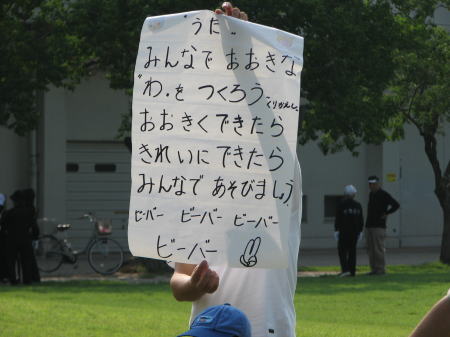 "うた"
みんなで おおきな
"わ"を つくろう。くりかえし
おおきくできたら
きれいにできたら
みんなで あそびましょう。
ビーバー ビーバー ビーバー
ビーバー